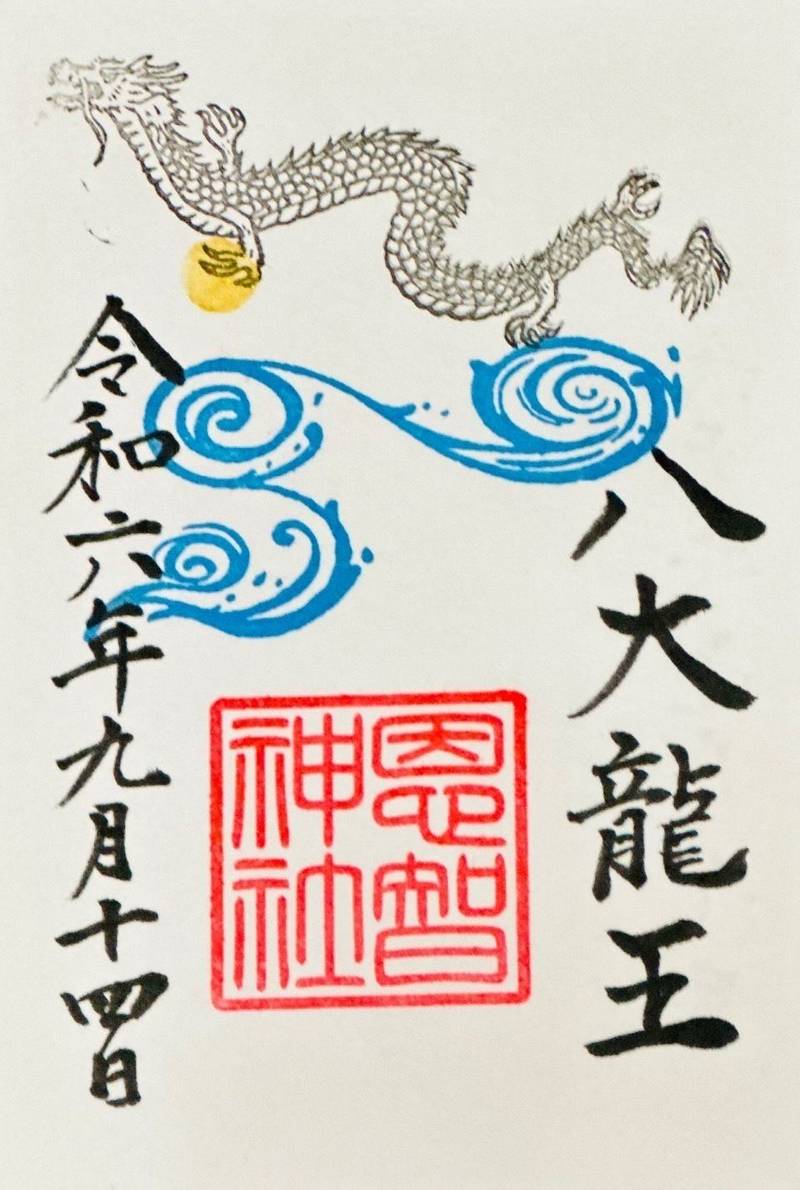 八大龍王
恩智
神社
令和六年九月十四日